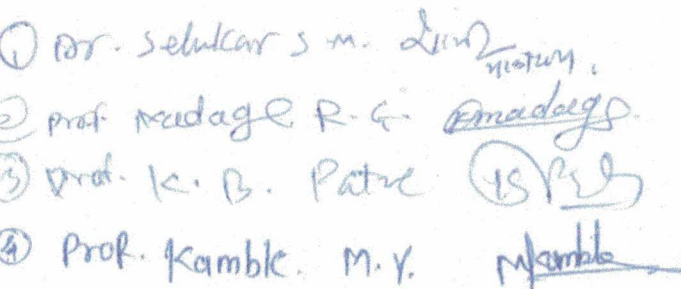 ① Dr. Selukar S m. History.
② Prof. Madage R. G. Rmadage
③ Prof. K. B. Patve
④ Prof. Kamble. M. Y. Mkamble